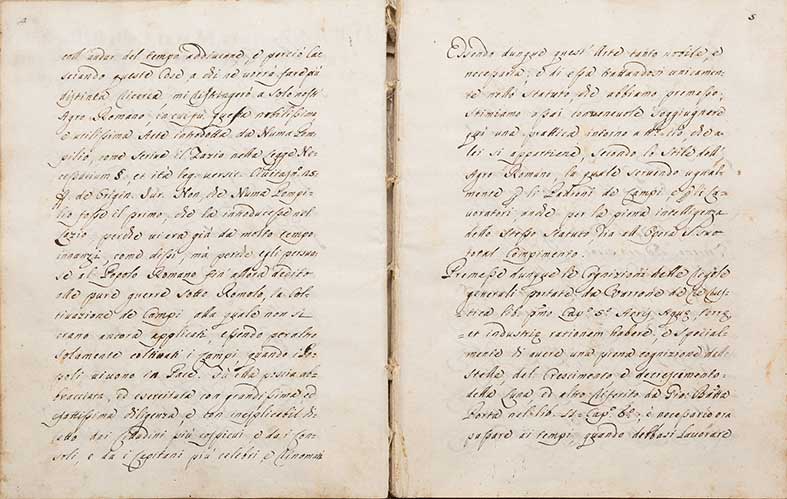 coll'andar del tempo adducare, e perciò la=
sciando queste cose a chi ne vorrà fare più
distinta ricerca, mi ristringerò a solo nostro
Agro Romano, in cui questa nobilissima
e utilissima Arte introdotta da Numa Pom=
pilio, come scrive il Zasio nella Legge Ne=
cessarium §. et ità leg. versic.
ff. de Origin. Jur. Non, che Numa Pompi=
lio fosse il primo, che la introducesse nel
Lazio, perchè vi era già da molto tempo
innanzi, come dissi, ma perchè egli persua=
se al Popolo Romano fin allora dedito
alle pure guerre sotto Romolo, la Col=
tivazione de Campi alla quale non si
erano ancora applicati, essendo per altro
solamente coltivati i campi, quando i Po=
poli vivono in Pace. Fu ella poscia ab=
bracciata, ed esercitata con grandissima ed
esattissima diligenza e con inesplicabil di=
letto dai Cittadini più cospicui, e da i Con=
soli, e da i Capitani più celebri e Rinomati
5
Essendo dunque quest'Arte tanto nobile, e
necessaria, e di essa trattandosi unicamen=
te nello Statuto, che abbiamo premesso,
Stimiamo assai convenevole soggiugnere
qui una prattica intorno a ciò, che a
lei si appartiene, secondo lo Stile dell'
Agro Romano, la quale servendo ugual=
mente p li Padroni de Campi, e p li La=
voratori, anche per la piena intelligenza
dello Stesso Statuto, dia all'Opera il suo
total Compimento.
Premesse dunque le Cognizioni delle Regole
generali portate da Varrone de Re Rus=
tica lib. pmo Cap. 5. Aeris, Aquę, terrę
et industrię rationem habere, e special=
mente di avere una piena cognizione delle
Stelle, del Crescimento e decrescimento
della Luna ed altro riferito da Gio: Batta
Porta nel lib. Cap. 6, è necessario ora
passare ai tempi, quando debbasi lavorare